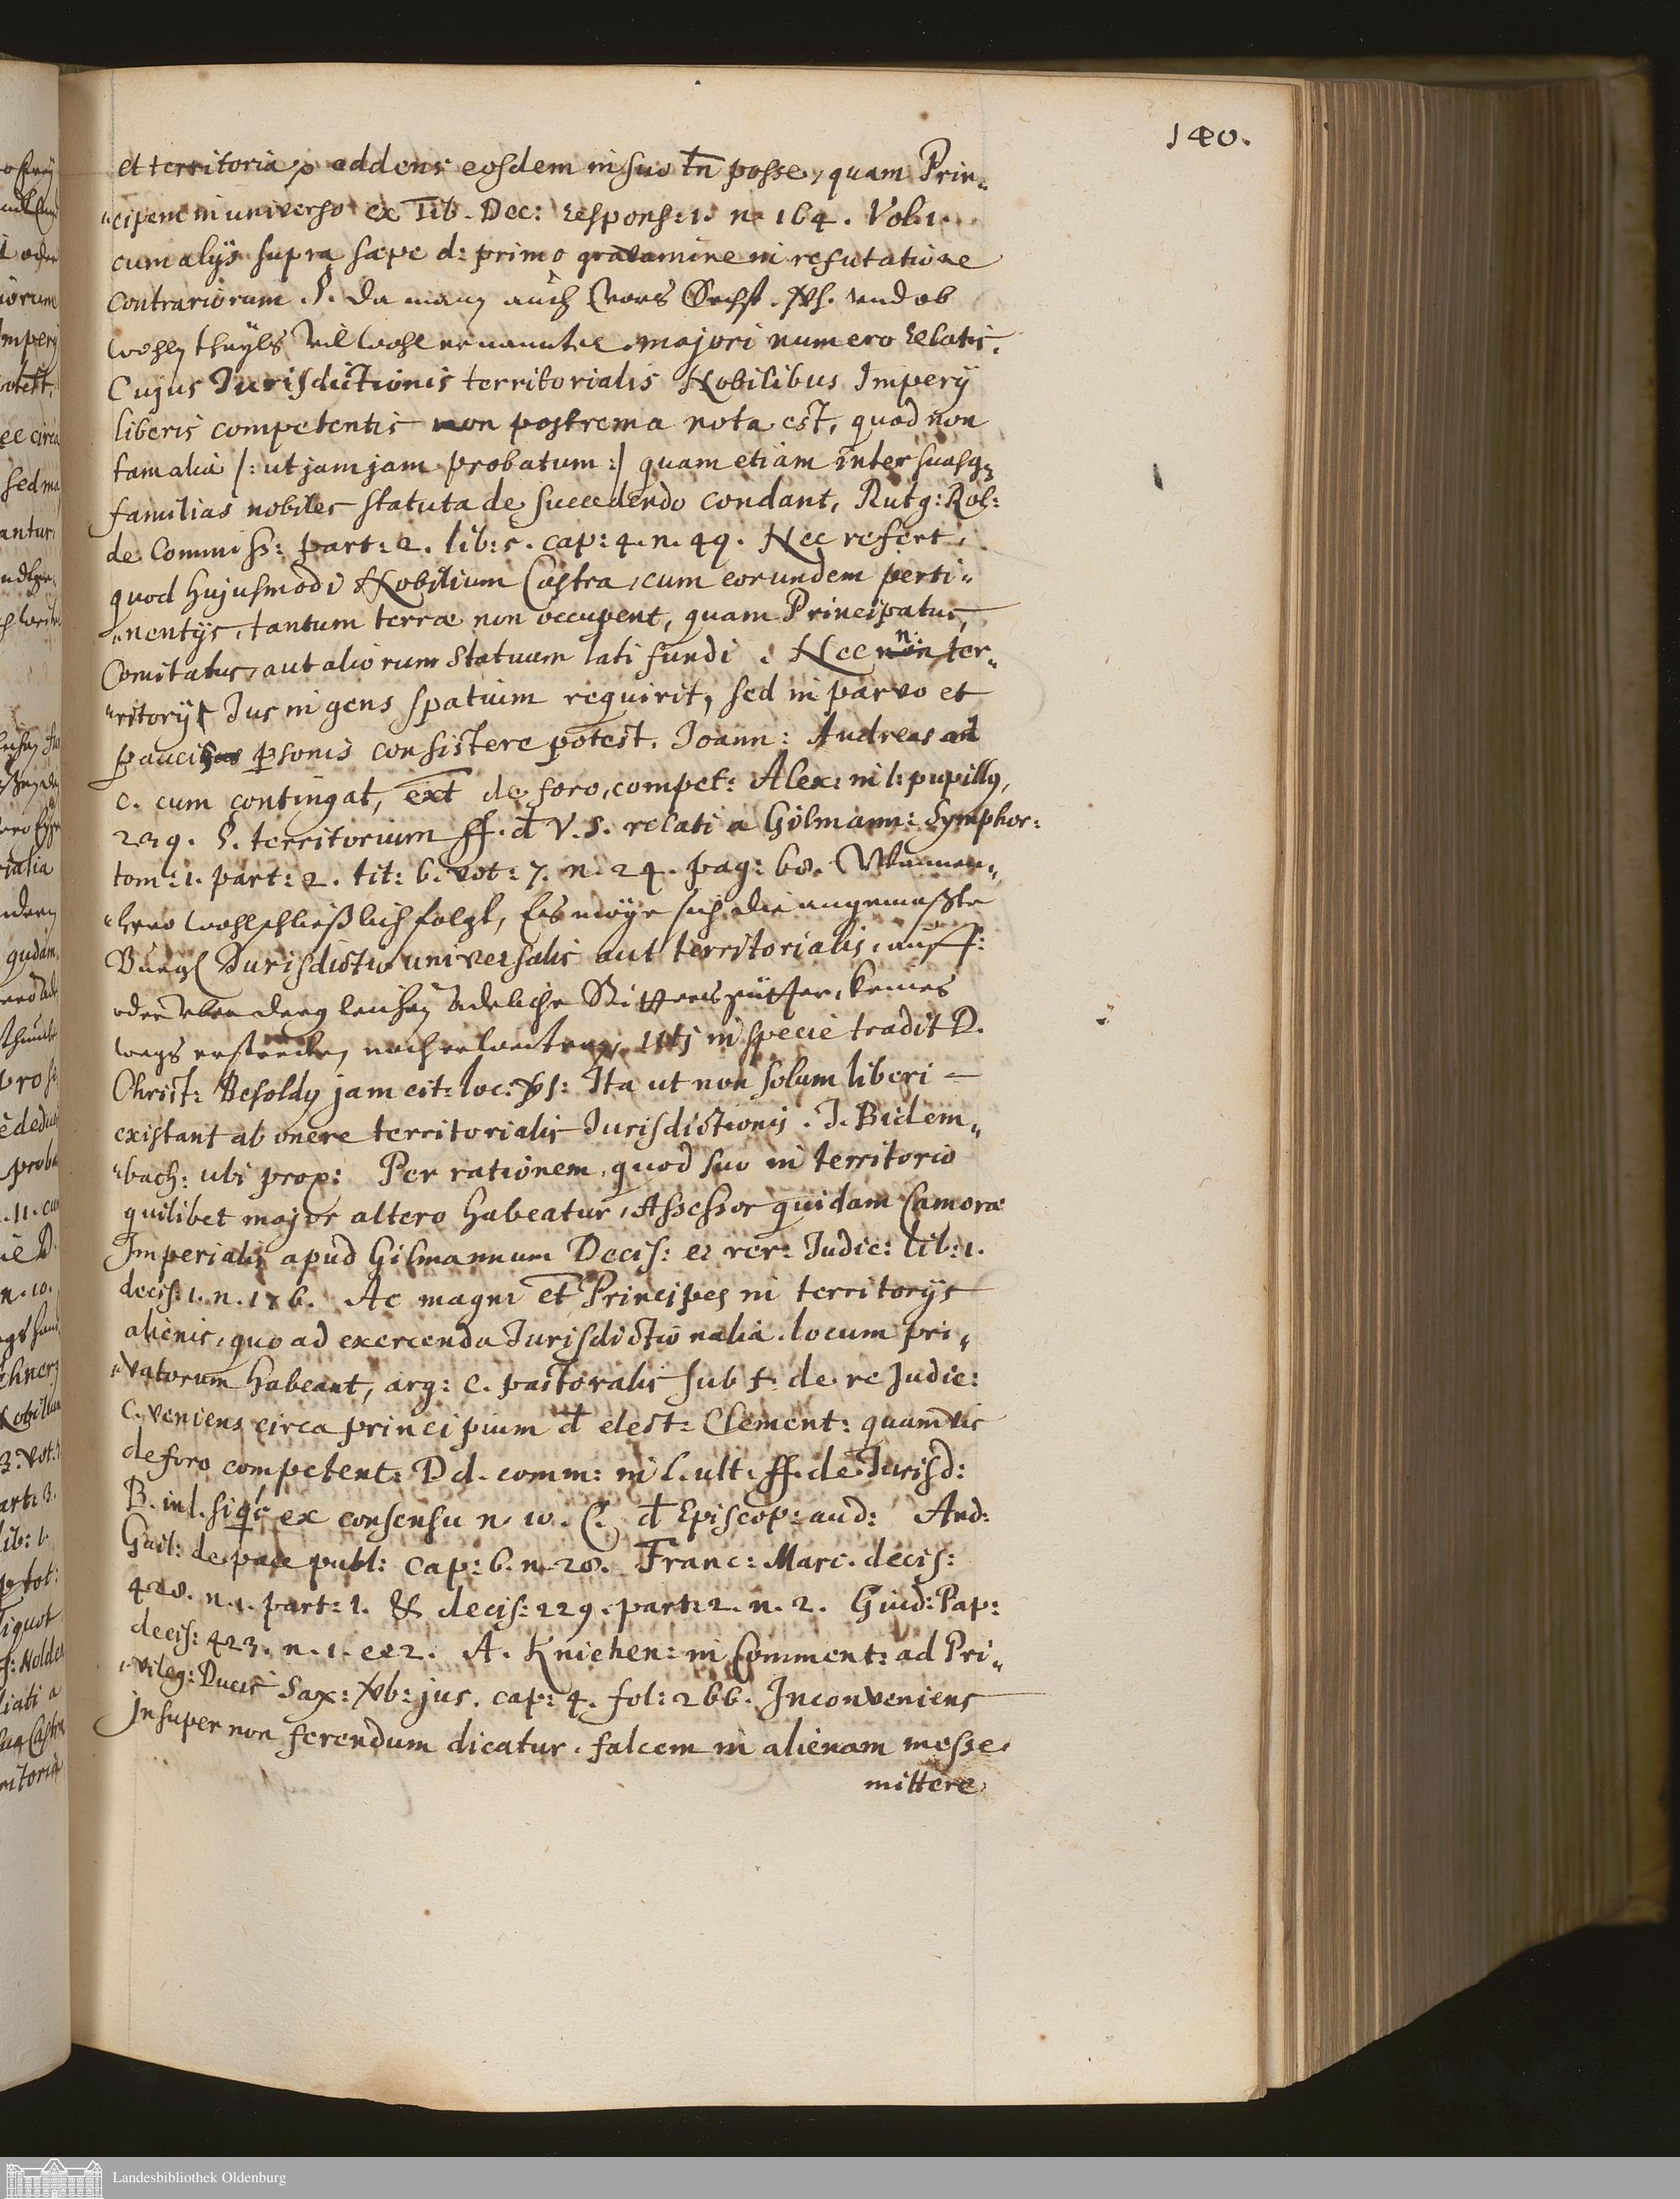 140.
et territoria, addens eosdem in suo tn posse, quam Prin„
„cipem in universo ex Tib. Dec: respons: 1. n. 164. Vol. 1.
cum alijs supra sæpe d: primo gravamine in refutatione
contrariorum. §. da man auch Vors Sechst. vs. und ob
wohln theyls majori numero relatis.
Cujus Jurisdictionis territorialis Nobilibus Imperij
liberis competentis non postrema nota est, quod non
tam alia /: ut jamjam probatum :/ quam etiam inter suasq3
familias nobiles statuta de succedendo condant, Rutg: Rol:
de Commiss: part: 2. lib: 5. cap: 4. n. 49. Nec refert,
quod hujusmodi Nobilium Castra, cum eorundem perti„
„nentijs, tantum terræ non occupent, quam Principatus,
Comitatus, aut aliorum Statuum lati fundi. Nec n: ter„
„ritorij Jus ingens spatium requirit, sed in parvo et
pauci psonis consistere potest. Joann: Andreas ad
c. cum contingat, ext de foro, compet: Alex: in l: pupillq,
239. §. territorium ff. d V. S. relati a Gilmann: Symphor:
tom: 1. part: 2. tit: 6. vot: 7. n. 24. pag: 68.
„hero wohl schließlich folgt, Es möge sich die angemaßte
Burgl Jurisdictio universalis aut territorialis, auff:
oder adeliche Rittersgütter, keines
wegs erstrecken, noch utj in specie tradit D.
Christ: Besoldq jam cit: loc: vs: Ita ut non solum liberi
existant ab onere territorialis Jurisdictionis. J. Bidem„
„bach: ubi prox: Per rationem, quod suo in territorio
quilibet major altero habeatur, Assessor quidam Cameræ
Imperialis apud Gilmannum Decis: et rer: Judic: lib: 1.
decis: 1. n. 176. Ac magni et Principes in territorijs
alienis, quo ad exercenda Jurisdictionalia, locum pri„
„vatorum habeant, arg: c. pastoralis sub f. de re Judic:
c. veniens circa principium d elect: Clement: quamvis
de foro competent: Dd. comm: in l. ult. ff. de Jurisd:
B. in l. si qs ex consensu n 10. C. d Episcop: aud: And:
Gail: de pace publ: cap: 6. n. 28. Franc: Marc. decis:
428. n. 1. part: 1. & decis: 229. part: 2. n. 2. Guid: Pap:
decis: 423. n. 1. et 2. A. Knichen: in Comment: ad Pri„
„vileg: Ducis Sax: vb: jus. cap: 4. fol: 266. Inconveniens
Insuper non ferendum dicatur, falcem in alienam messe
mittere
Landesbibliothek Oldenburg